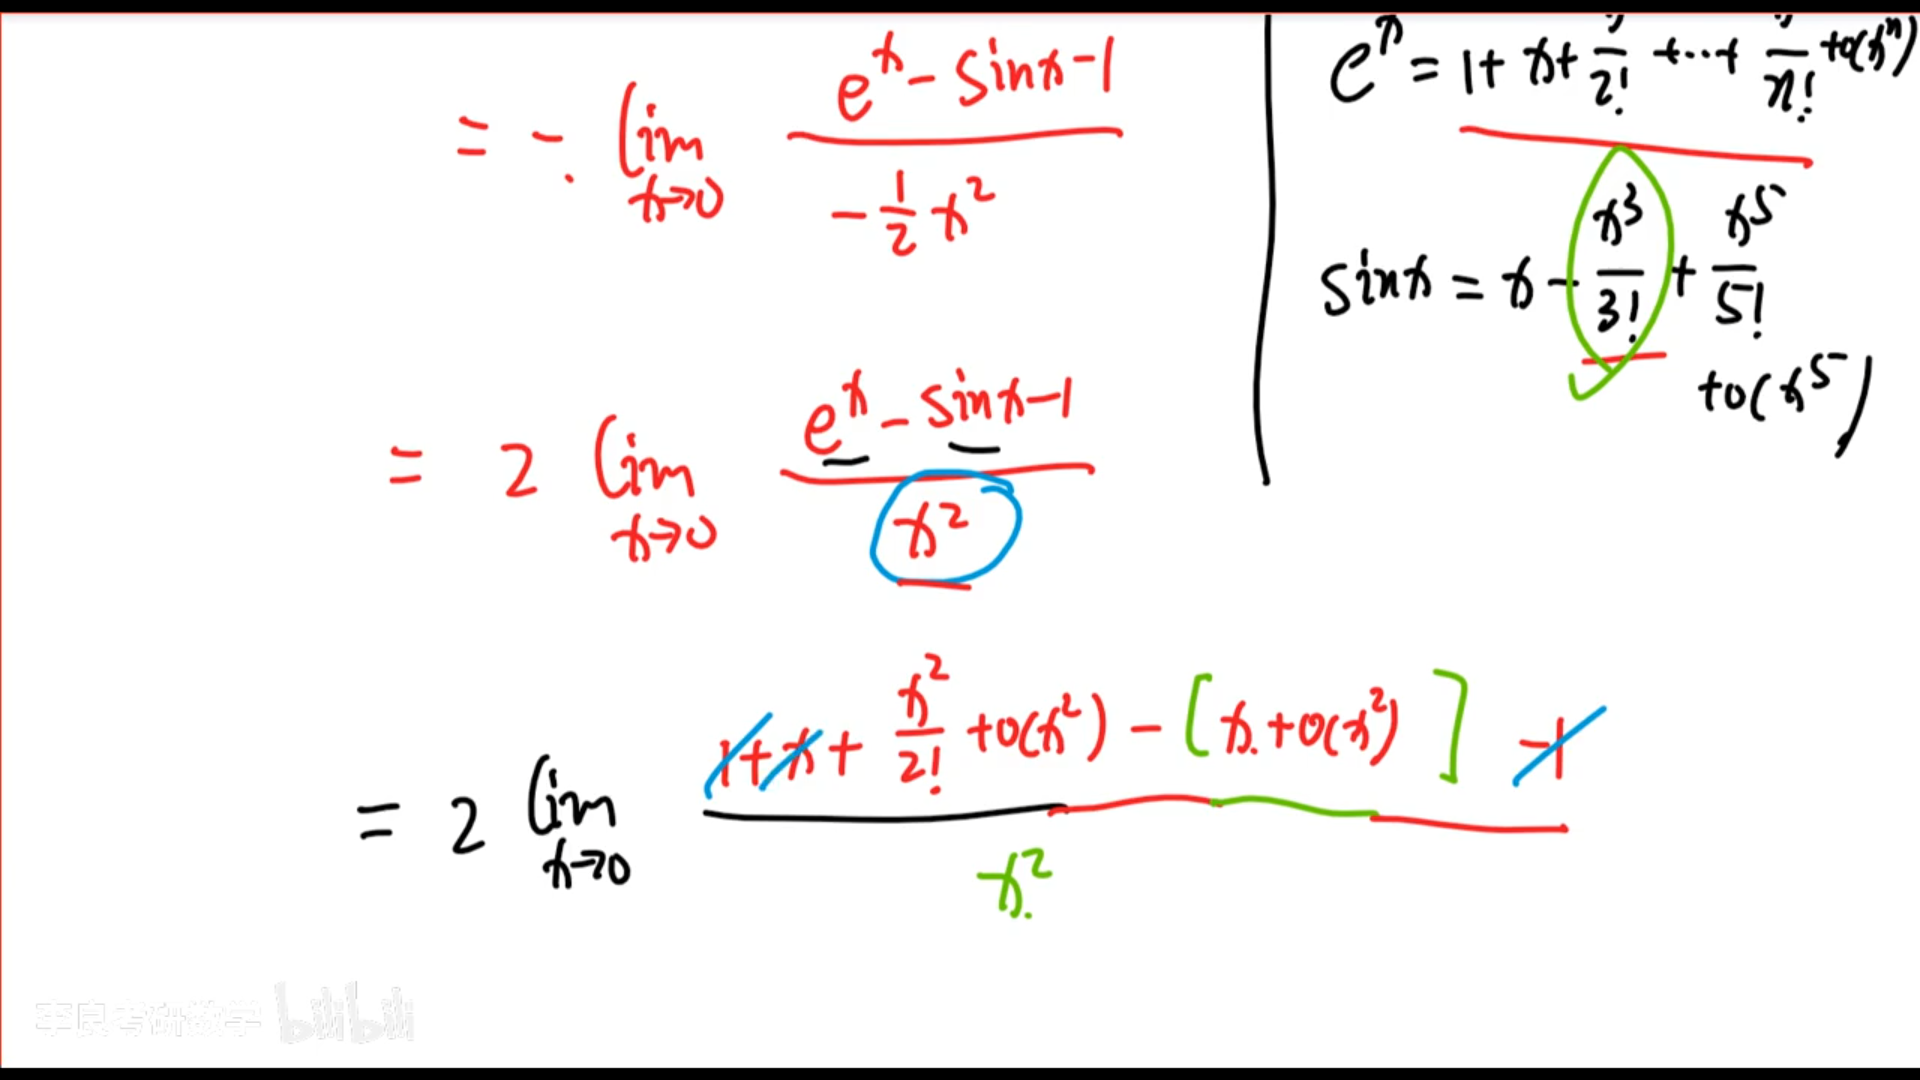 = - lim x→0 (e^x - sinx - 1) / (-1/2 x^2)
= 2 lim x→0 (e^x - sinx - 1) / x^2
= 2 lim x→0 (1 + x + x^2/2! + o(x^2) - [x + o(x^2)] - 1) / x^2
e^x = 1 + x + /2! + ... + /n! + o(x^n)
sinx = x - x^3/3! + x^5/5!
+ o(x^5)
李良考研数学 bilibili